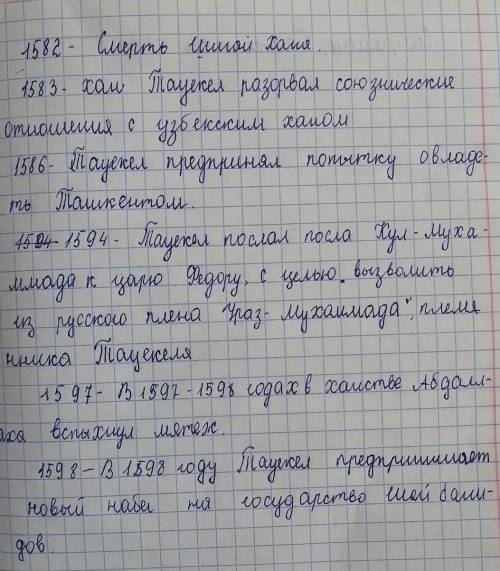 1582 - Смерть Шигой хана.
1583 - хан Тауекел разорвал союзнические
отношения с узбекским ханом
1586 - Тауекел предпринял попытку овладе-
ть Ташкентом.
1594-1594 - Тауекел послал посла Кул-Муха-
ммада к царю Федору, с целью вызволить
из русского плена Ураз-Мухаммада", племя
нника Тауекеля
1597 - В 1597-1598 годах в ханстве Абдалл-
аха вспыхнул мятеж.
1598 - В 1598 году Тауекел предпринимает
новый набег на государство Шейбани-
дов.